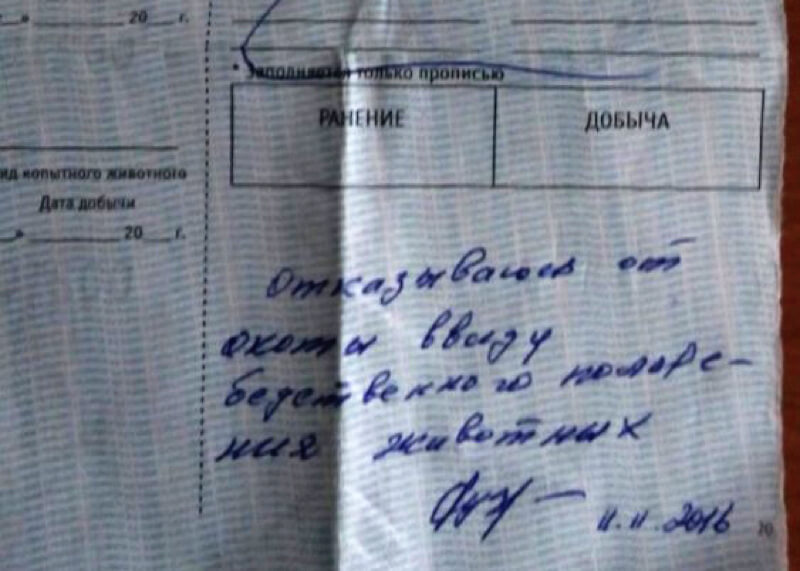 » 20 г.
* Заполняется только прописью
РАНЕНИЕ
ДОБЫЧА
ид копытного животного
Дата добычи
» 20 г.
Отказываюсь от
охоты ввиду
бедственного положе-
ния животных
11.11.2016
20